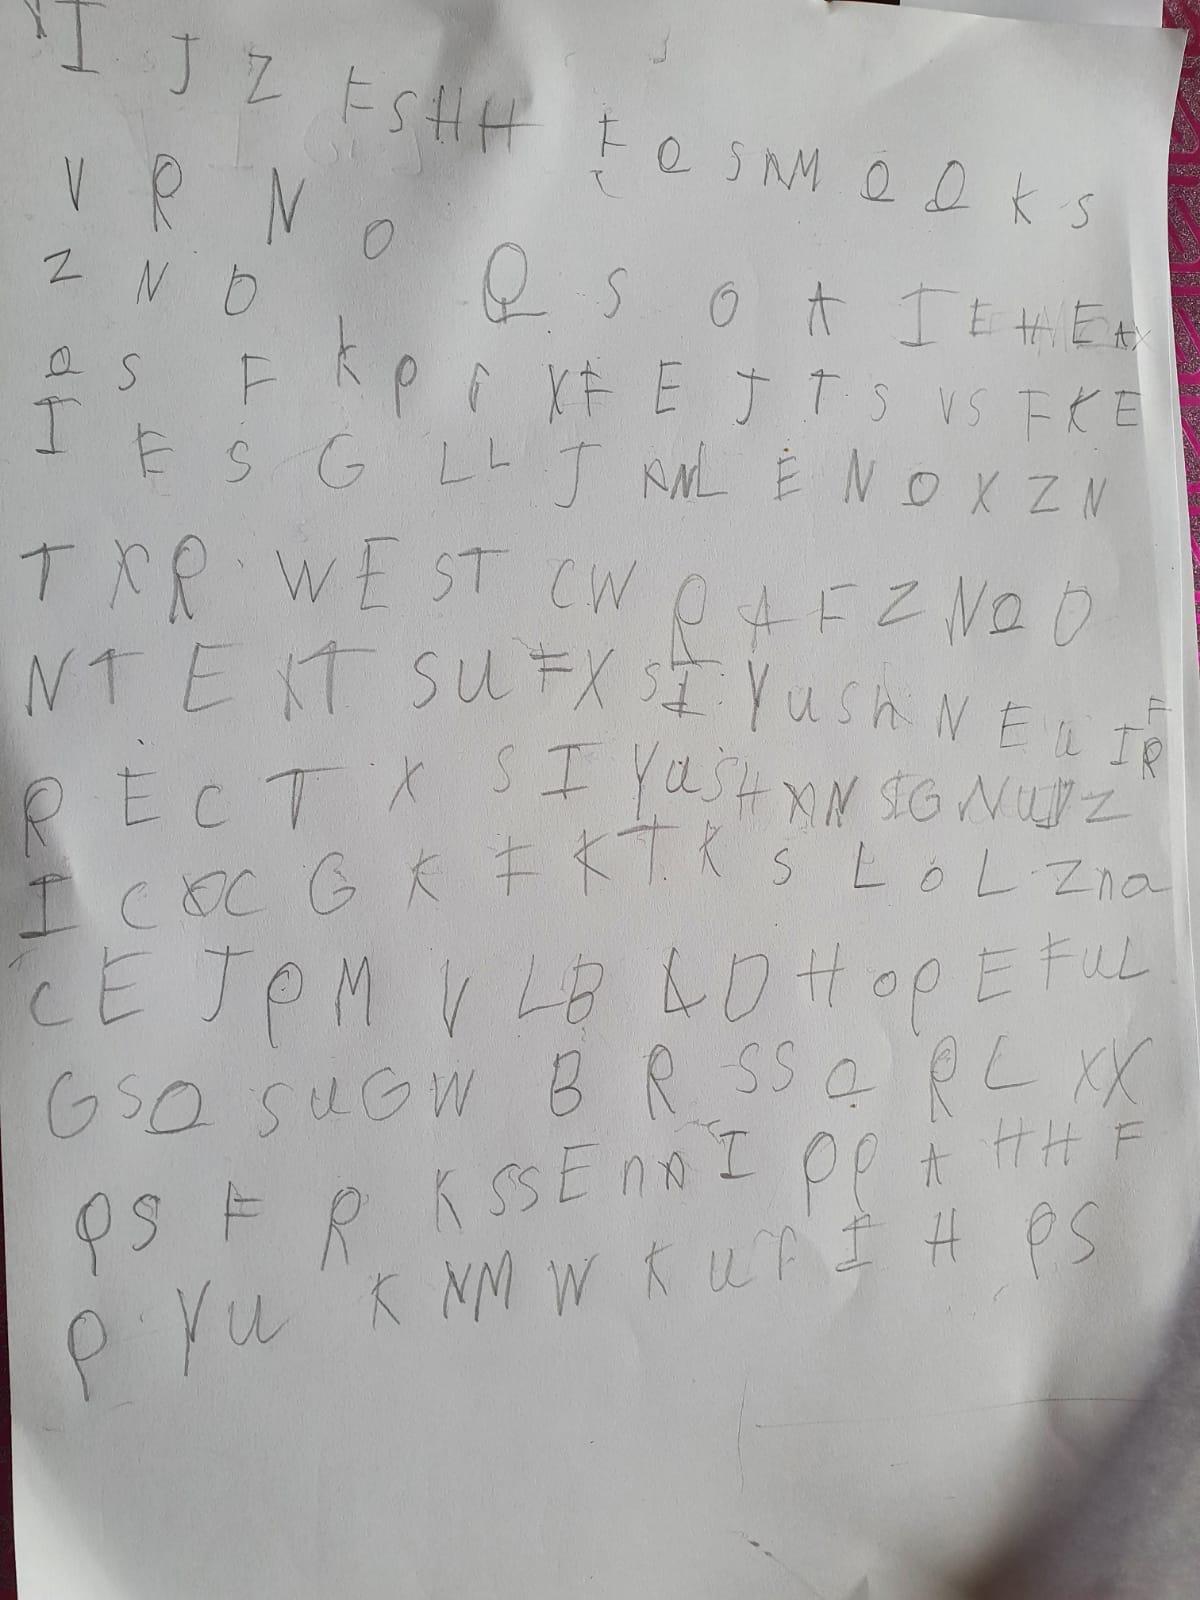 I J Z F S H H F Q S A M Q Q K S
V R N O
Z N O Q S O A I E H E A X
Q S F K P F X F E J T S V S F K E
I F S G L L J A N L E N O X Z N
T X R W E S T C W R A F Z N Q O
N T E X T S U F X S I Y U S h N E U I R F
R E C T X S I Y U S H A N S I G N U Z
I C O C G K F K T K S L O L Z n a
C E J P M V L B A D H O P E F U L
G S Q S U G W B R S S Q R L X X
P S F R K S S E n A I P P A H H F
P Y U K N M W K U F I H P S